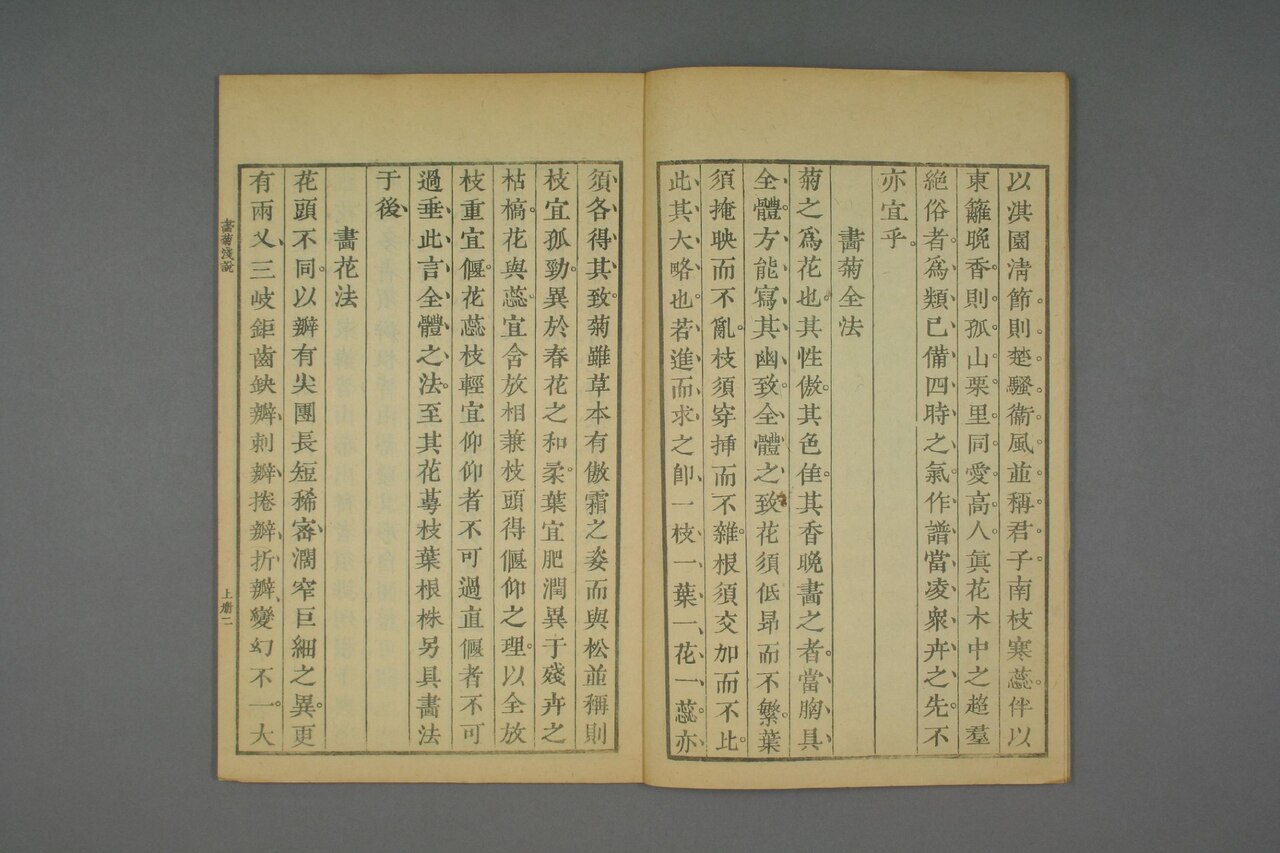 以淇園淸節則楚騷衞風並稱君子南枝寒蕊伴以
東籬晚香則孤山栗里同愛高人眞花木中之超羣
絕俗者爲類已備四時之氣作譜當凌衆卉之先不
亦宜乎。
畫菊全法
菊之爲花也其性傲其色佳其香晚畫之者當胸具
全體方能寫其幽致全體之致花須低昻而不繁葉
須掩映而不亂枝須穿揷而不雜根須交加而不比
此其大略也若進而求之卽一枝一葉一花一蕊亦
須各得其致菊雖草本有傲霜之姿而與松並稱則
枝宜孤勁異於春花之和柔葉宜肥潤異于殘卉之
枯槁花與蕊宜含放相兼枝頭得偃仰之理以全放
枝重宜偃花蕊枝輕宜仰仰者不可過直偃者不可
過垂此言全體之法至其花萼枝葉根株另具畫法
于後
畫花法
花頭不同以瓣有尖團長短稀密濶窄巨細之異更
有兩乂三岐鉅齒缺瓣刺瓣捲瓣折瓣變幻不一大
畫菊淺說
上册二